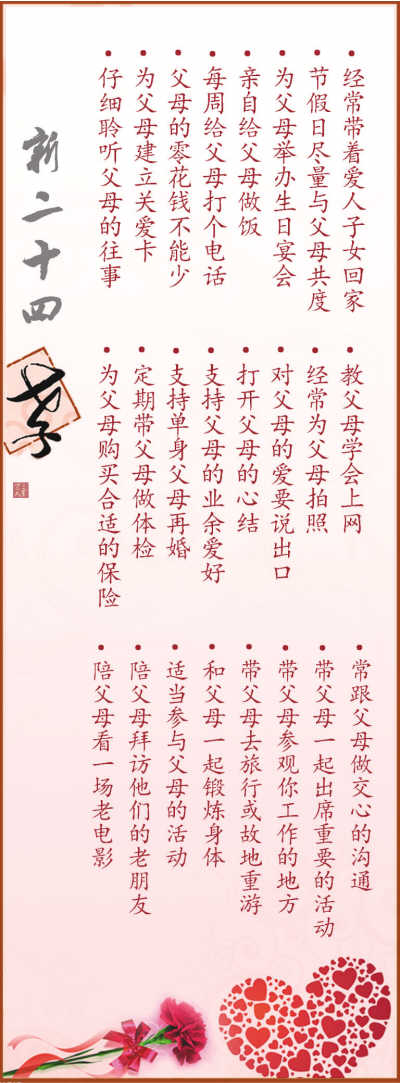 经常带着爱人子女回家
节假日尽量与父母共度
为父母举办生日宴会
亲自给父母做饭
每周给父母打个电话
父母的零花钱不能少
为父母建立关爱卡
仔细聆听父母的往事
教父母学会上网
经常为父母拍照
对父母的爱要说出口
打开父母的心结
支持父母的业余爱好
支持单身父母再婚
定期带父母做体检
为父母购买合适的保险
常跟父母做交心的沟通
带父母一起出席重要的活动
带父母参观你工作的地方
带父母去旅行或故地重游
和父母一起锻炼身体
适当参与父母的活动
陪父母拜访他们的老朋友
陪父母看一场老电影
新二十四孝